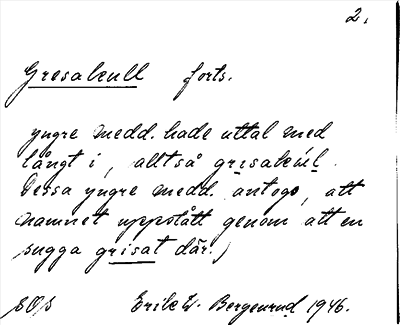 2.
Gresakull forts.
yngre medd. hade uttal med
långt i, alltså grisakúl.
Dessa yngre medd. antogo, att
namnet uppstått genom att en
sugga grisat där.)
Erik W. Bergenrud 1946.